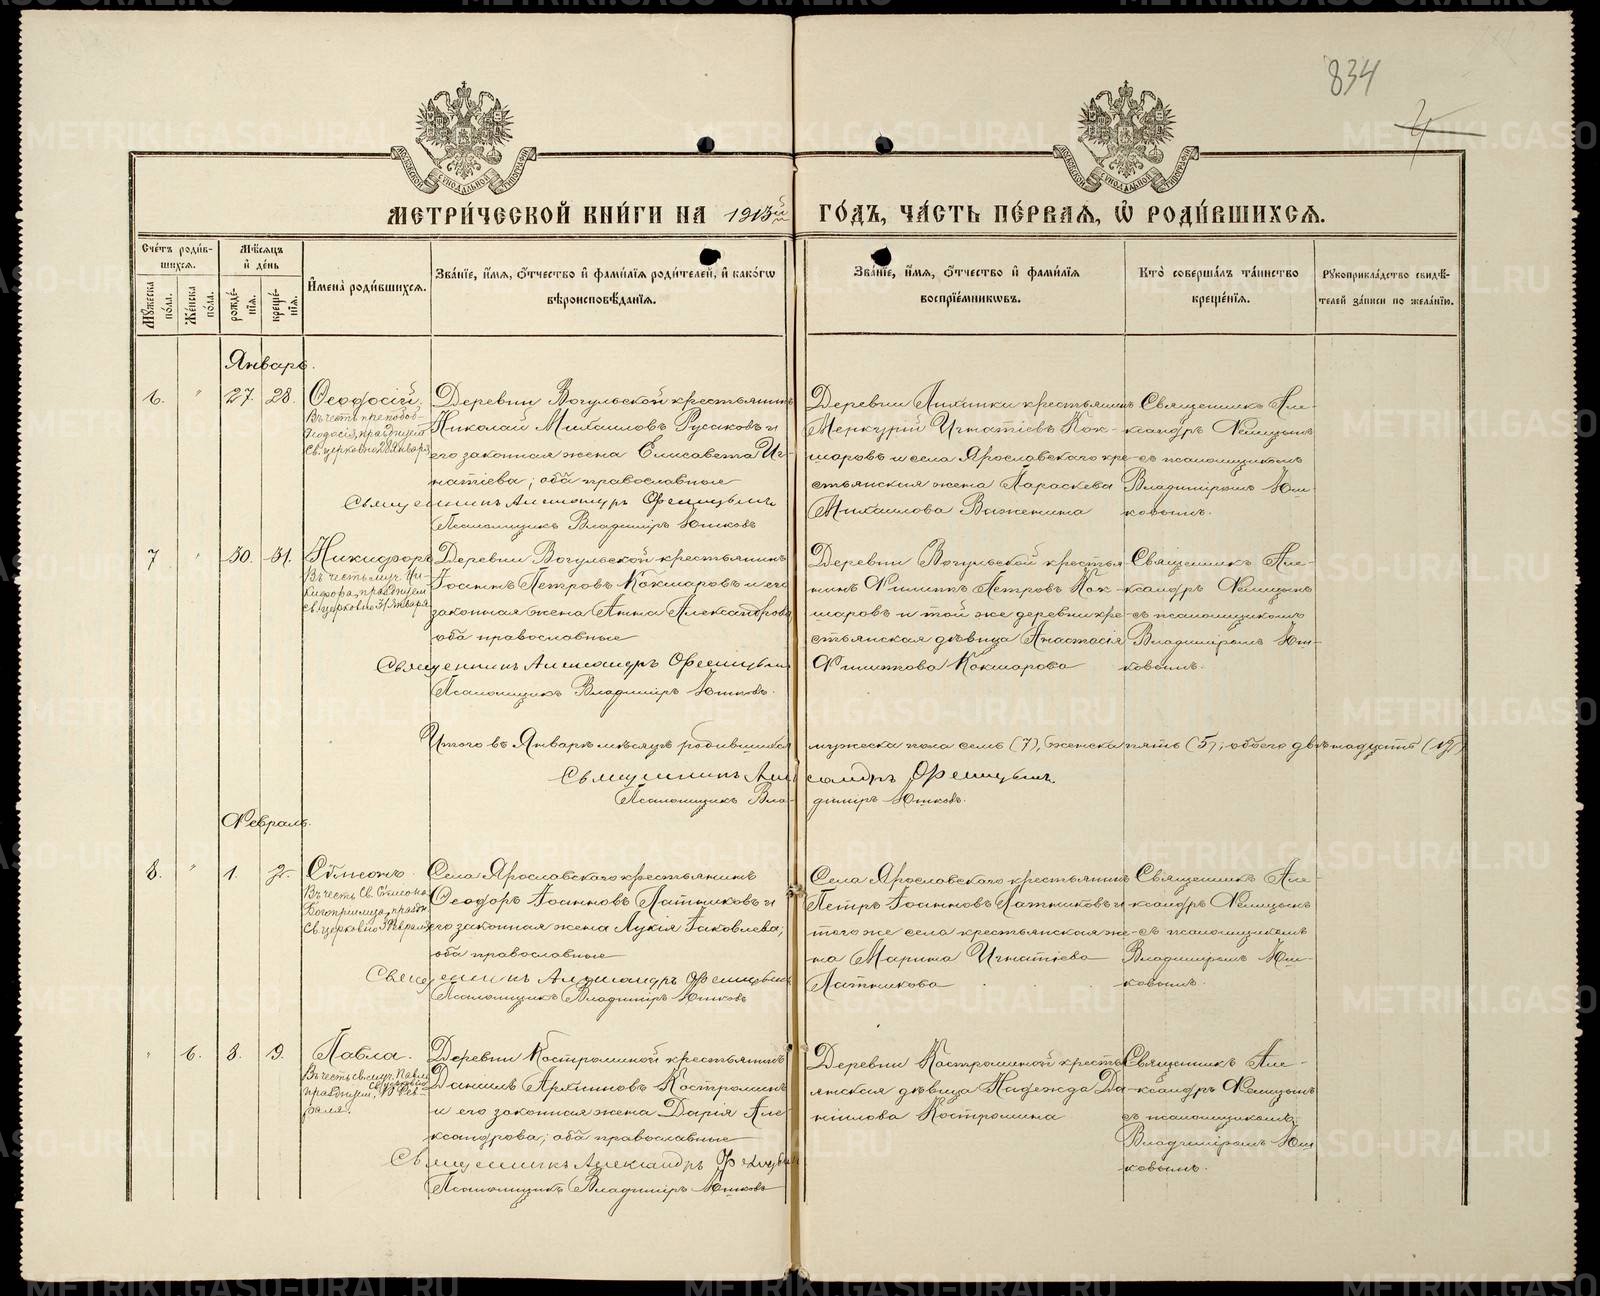 834
4
МЕТРИ́ЧЕСКОЙ КНИ́ГИ НА 1913й ГО́ДЪ, ЧА́СТЬ ПЕ́РВАЯ, Ѿ РОДИ́ВШИХСЯ.
Сче́тъ роди́в-
шихся.
Мѣ́сяцъ
и҆ де́нь
Мꙋ́жеска
по́ла.
Же́нска
по́ла.
рожде́-
нїя.
креще́-
нїя.
И҆мена̀ роди́вшихся.
Зва́нїе, и҆́мя, ѻ҆́тчество и҆ фами́лїя роди́телей, и҆ како́гѡ
вѣроисповѣ́данїя.
Зва́нїе, и҆́мя, ѻ҆́тчество и҆ фами́лїя
воспрїе́мникѡвъ.
Кто̀ соверша́лъ та́инство
креще́нїя.
Рꙋкоприкла́дство свидѣ́-
телей за́писи по жела́нїю.
Январь.
6. " 27. 28. Ѳеодосій.
Въ честь преподоб-
Ѳеодосія, празднуем.
Св. церковію 28 Января
Деревни Вогульской крестьянинъ
Николай Михаиловъ Русаковъ и
его законная жена Елисавета Иг-
натіева; оба православные
Священникъ Александръ Ѳелицынъ
Псаломщикъ Владиміръ Юшковъ
Деревни Аникинки крестьянинъ
Меркурій Игнатіевъ Кок-
шаровъ и села Ярославскаго кре-
стьянская жена Параскева
Михаилова Важенина
Священникъ Але-
ксандръ Ѳелицынъ
съ псаломщикомъ
Владиміромъ Юш-
ковымъ.
7 " 30. 31. Никифоръ
Въ честь муч. Ни-
кифора, празднуем
св. церковію 31 Января
Деревни Вогульской крестьянинъ
Іоаннъ Петровъ Кокшаровъ и его
законная жена Анна Александрова
оба православные
Священникъ Александръ Ѳелицынъ
Псаломщикъ Владиміръ Юшковъ.
Деревни Вогульской крестья-
нинъ Филиппъ Петровъ Кок-
шаровъ и той же деревни кре-
стьянская дѣвица Анастасія
Филиппова Кокшарова
Священникъ Але-
ксандръ Ѳелицынъ
съ псаломщикомъ
Владиміромъ Юш-
ковымъ.
Итого въ Январѣ мѣсяцѣ родившихся мужеска пола семь (7), женска пять (5), обоего двѣнадцать (12)
Священникъ Александръ Ѳелицынъ.
Псаломщикъ Владиміръ Юшковъ.
Февраль.
8. " 1. 2. Сѵмеонъ.
Въ честь Св. Сѵмеона
Богопріимца, праздн.
Св. церковію 3 Февраля
Села Ярославскаго крестьянинъ
Ѳеодоръ Іоанновъ Латниковъ и
его законная жена Лукія Іаковлева;
оба православные
Священникъ Александръ Ѳелицынъ
Псаломщикъ Владиміръ Юшковъ
Села Ярославскаго крестьянинъ
Петръ Іоанновъ Латниковъ и
того же села крестьянская же-
на Марина Игнатіева
Латникова
Священникъ Але-
ксандръ Ѳелицынъ
съ псаломщикомъ
Владиміромъ Юш-
ковымъ.
" 6. 8. 9. Павла.
Въ честь св. муч. Павлы
празднуем.
Деревни Костромıной крестьянинъ
Даніилъ Архиповъ Костроминъ
и его законная жена Дарія Але-
ксандрова; оба православные
Священникъ Александръ Ѳелицынъ
Псаломщикъ Владиміръ Юшковъ
Деревни Костроминой кресть-
янская дѣвица Надежда Да-
ніилова Костромина
Священникъ Але-
ксандръ Ѳелицынъ
съ псаломщикомъ
Владиміромъ Юш-
ковымъ.
METRIKI.GASO-URAL.RU